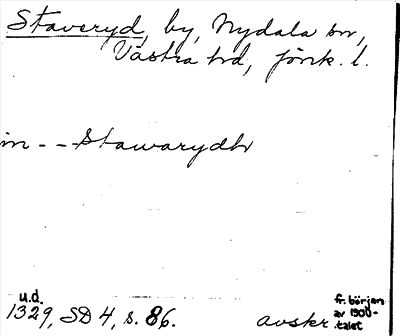 Staveryd, by, Nydala sn,
Västra hd, Jönk. l.
in - - Stawarydh
u.d.
1329, SD 4, s. 86.
avskr.
fr. början
av 1900-
talet